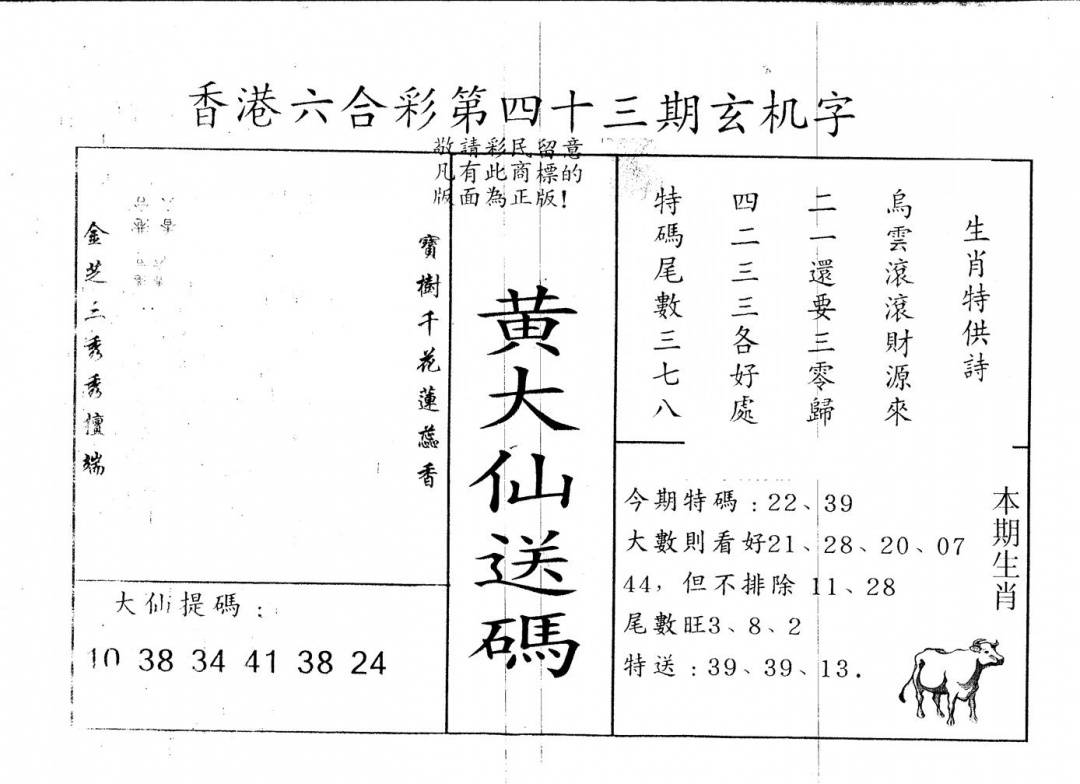 香港六合彩第四十三期玄机字
敬請彩民留意
凡有此商標的
版面為正版!
生肖特供詩
烏雲滾滾財源來
二一還要三零歸
四二三三各好處
特碼尾數三七八
黄大仙送碼
寶樹千花蓮蕊香
金芝三秀秀儃端
大仙提碼:
10 38 34 41 38 24
今期特碼:22、39
大數則看好21、28、20、07
44,但不排除 11、28
尾數旺3、8、2
特送:39、39、13.
本期生肖